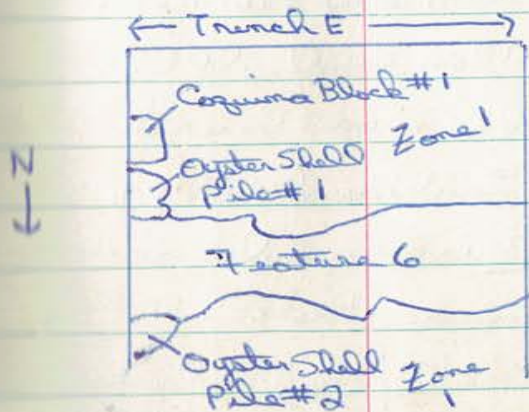 Trench E
Coquina Block #1
Zone 1
Oyster Shell
Pile #1
N
Feature 6
Oyster Shell
Pile #2
Zone
1